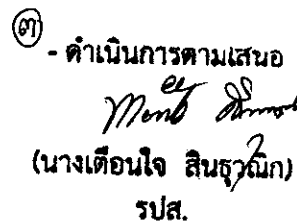 ๓
- ดำเนินการตามเสนอ
(นางเตือนใจ สินธุวณิก)
รปส.